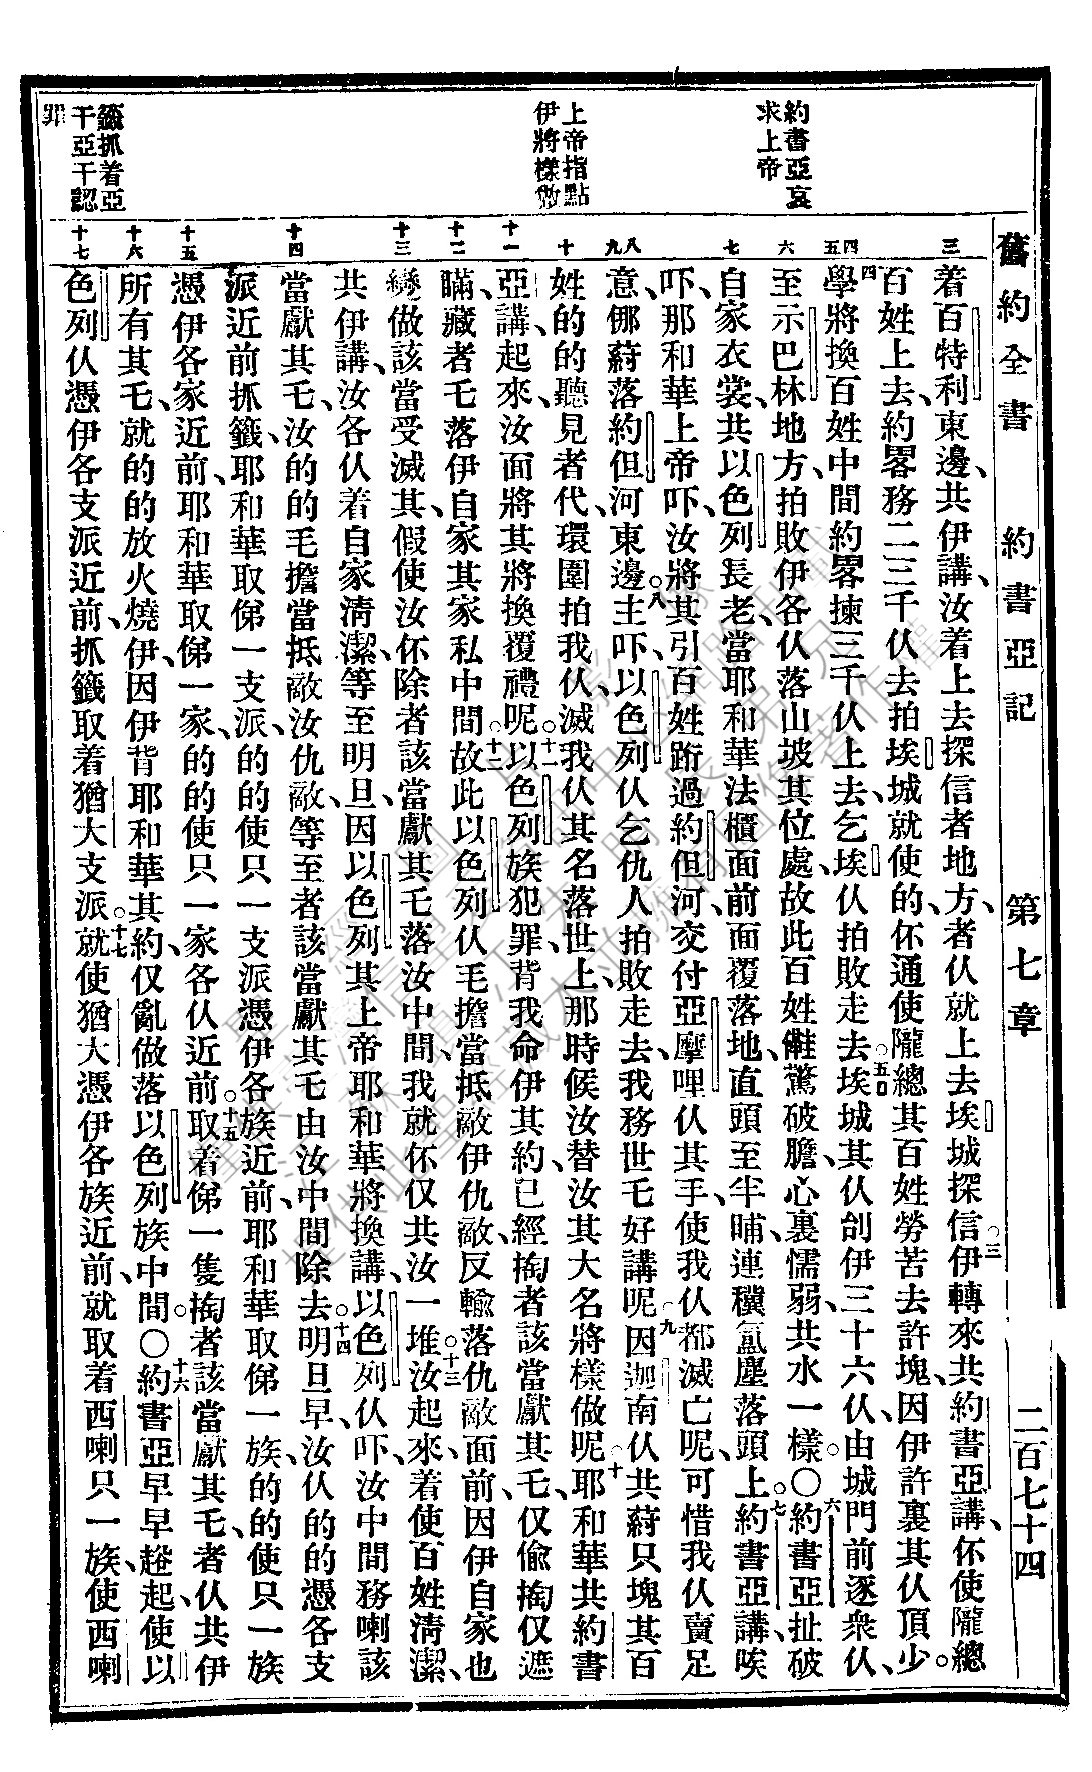 舊約全書　約書亞記　第七章　二百七十四
約書亞哀
求上帝
上帝指點
伊將樣做
籤抓着亞
干亞干認
罪
三
四
五
六
七
八
九
十
十一
十二
十三
十四
十五
十六
十七
着百特利東邊、共伊講、汝着上去探信者地方、者仈就上去埃城探信。三伊轉來共約書亞講、伓使隴總
百姓上去、約畧務二三千仈去拍埃城、就使的伓通使隴總其百姓勞苦去許塊、因伊許裏其仈頂少。
四學將換百姓中間約畧揀三千仈上去、乞埃仈拍敗走去。五埃城其仈刣伊三十六仈、由城門前逐衆仈、
至示巴林地方、拍敗伊各仈落山坡其位處、故此百姓雔驚破膽、心裏懦弱、共水一樣。〇六約書亞扯破
自家衣裳、共以色列長老、當耶和華法櫃面前、面覆落地、直頭至半晡、連穰氳塵落頭上。七約書亞講、唉
吓、那和華上帝吓、汝將其引百姓跻過約但河、交付亞摩哩仈其手、使我仈都滅亡呢、可惜我仈賣足
意、㑚蒔落約但河東邊。八主吓、以色列仈乞仇人拍敗走去、我務世乇好講呢。九因迦南仈共蒔只塊其百
姓、的的聽見者代、環圍拍我仈、滅我仈其名落世上、那時候汝替汝其大名將樣做呢。十耶和華共約書
亞講、起來、汝面將其將換覆禮呢。十一以色列族犯罪、背我命伊其約、已經掏者該當獻其乇、仅偷掏仅遮
瞞、藏者乇落伊自家其家私中間。十二故此以色列仈毛擔當抵敵伊仇敵、反輸落仇敵面前、因伊自家也
繞做該當受滅其、假使汝伓除者該當獻其乇落汝中間、我就伓仅共汝一堆。十三汝起來、着使百姓清潔、
共伊講、汝各仈着自家淸潔、等至明旦、因以色列其上帝耶和華將換講、以色列仈吓、汝中間務喇該
當獻其乇、汝的的毛擔當抵敵汝仇敵、等至者該當獻其乇由汝中間除去。十四明旦早、汝仈的的憑各支
派近前抓籤、耶和華取俤一支派、的的使只一支派、憑伊各族近前、耶和華取俤一族、的的使只一族
憑伊各家近前、耶和華取俤一家、的的使只一家各仈近前。十五取着俤一隻掏者該當獻其乇、者仈共伊
所有其乇、就的的放火燒伊、因伊背耶和華其約、仅亂做落以色列族中間。〇十六約書亞早早䟓起、使以
色列仈憑伊各支派近前、抓籤取着猶大支派。十七就使猶大憑伊各族近前、就取着西喇只一族、使西喇